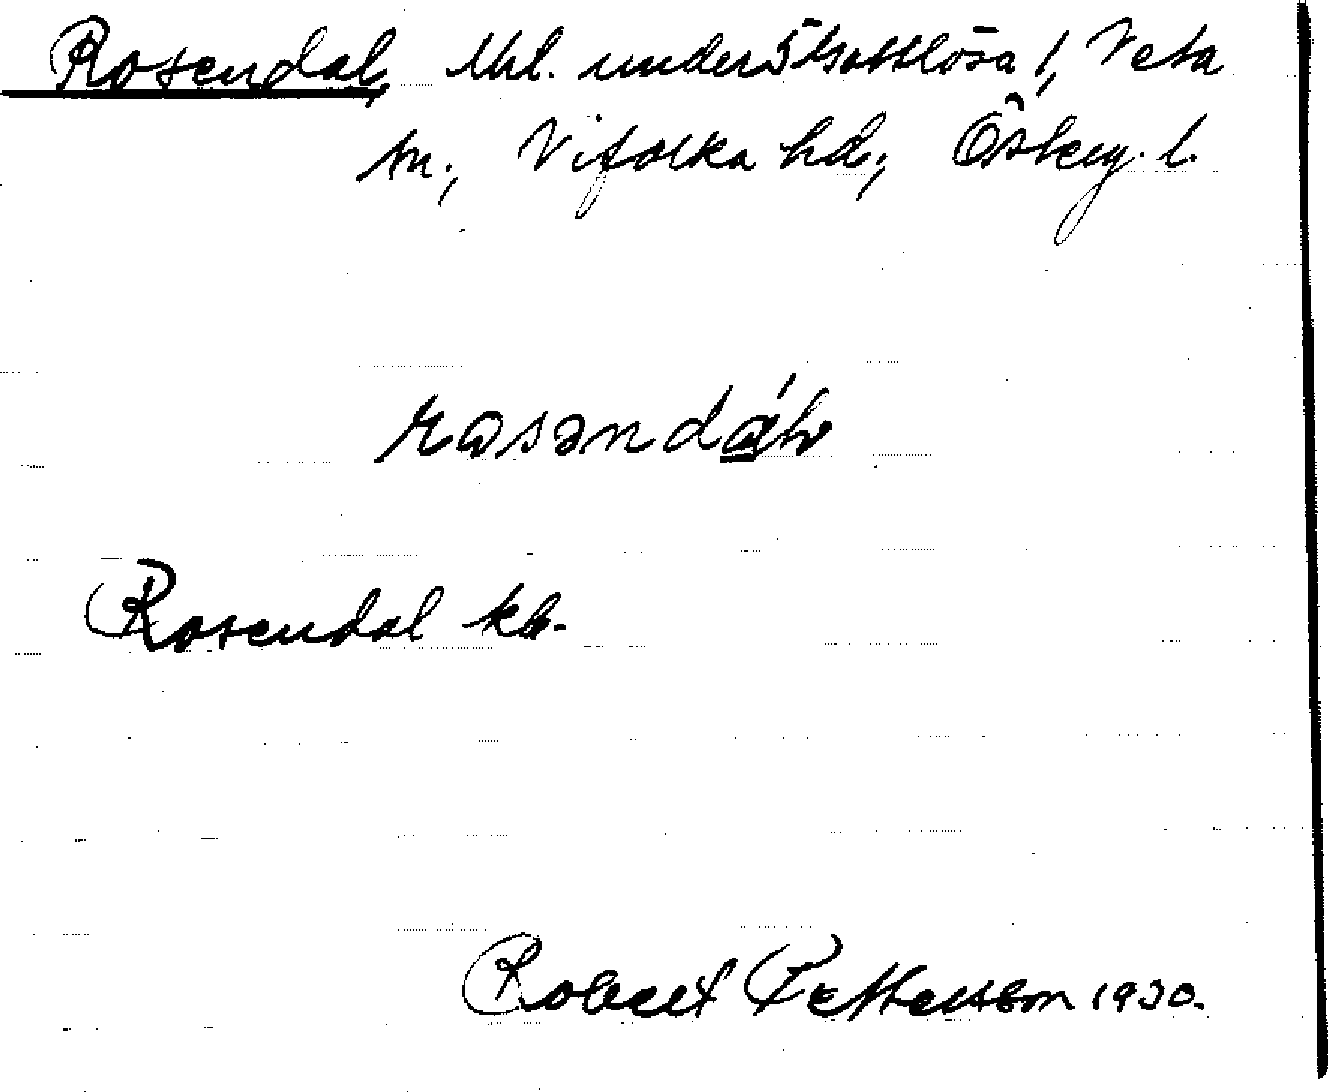 Rosendal, lht. under Skattlösa 1, Veta
sn., Vifolka hd., Österg. l.
rosəndáh
Rosendal kb.
Robert Pettersson 1930.